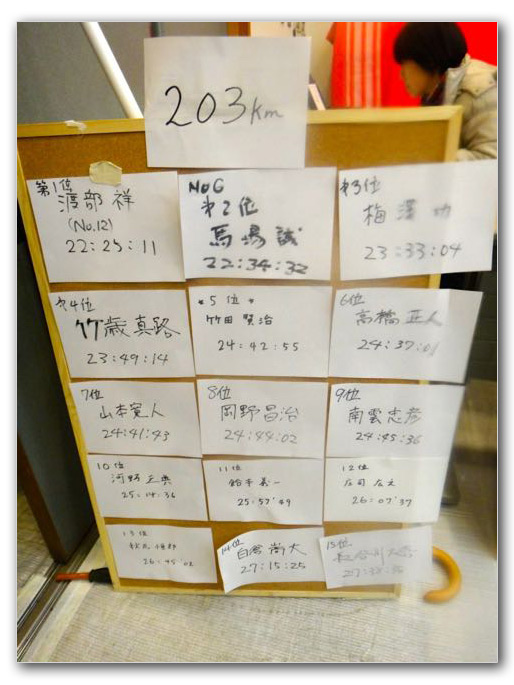 203km
第1位
渡部 祥
(No.12)
22:25:11
No6
第2位
馬場 誠
22:34:32
第3位
梅澤 功
23:33:04
第4位
竹歳真路
23:49:14
5位
竹田 賢治
24:42:55
6位
高橋 正人
24:37:01
7位
山本寛人
24:41:43
8位
岡野昌治
24:44:02
9位
南雲忠彦
24:45:36
10位
河野
25:14:36
11位
鈴木
25:57'49
12位
庄司
26:07'37
13位
26:45'02
14位
白倉 尚大
27:15:25
15位
長谷川